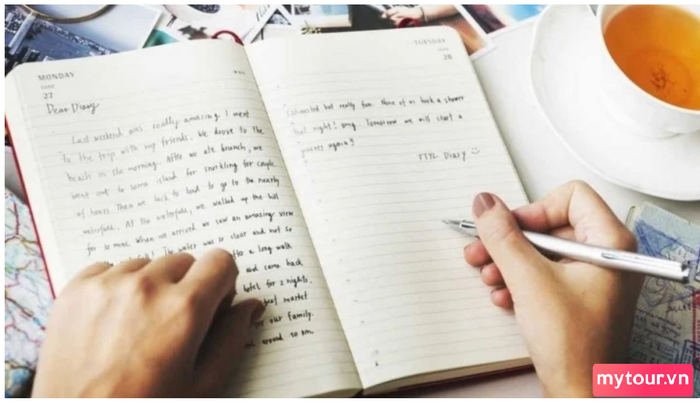 MONDAY
June
27
Dear Diary
Last weekend was really amazing. I went
to the trip with my friends. We drove to the
beach in the morning. After we ate brunch, we
went out to some island for snorkling for couple
of hours. Then we back to land to go to the nearby
waterfall. At the waterfall, we walked up the hill
for 10 mins. When we arrived we saw an amazing view
The water was so clear and not so
after a long walk
and came back
hotel for 2 nights.
market
for our family.
around 10 pm.
TUESDAY
June
28
Exhausted but really fun. None of us took a shower
that night! omg. Tomorrow we will start a
journey again!!
TTYL Diary
mytour.vn